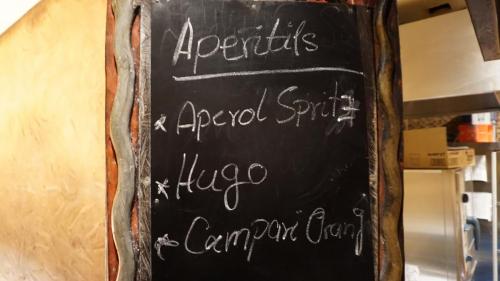 Aperitils
* Aperol Spritz
* Hugo
* Campari Orang